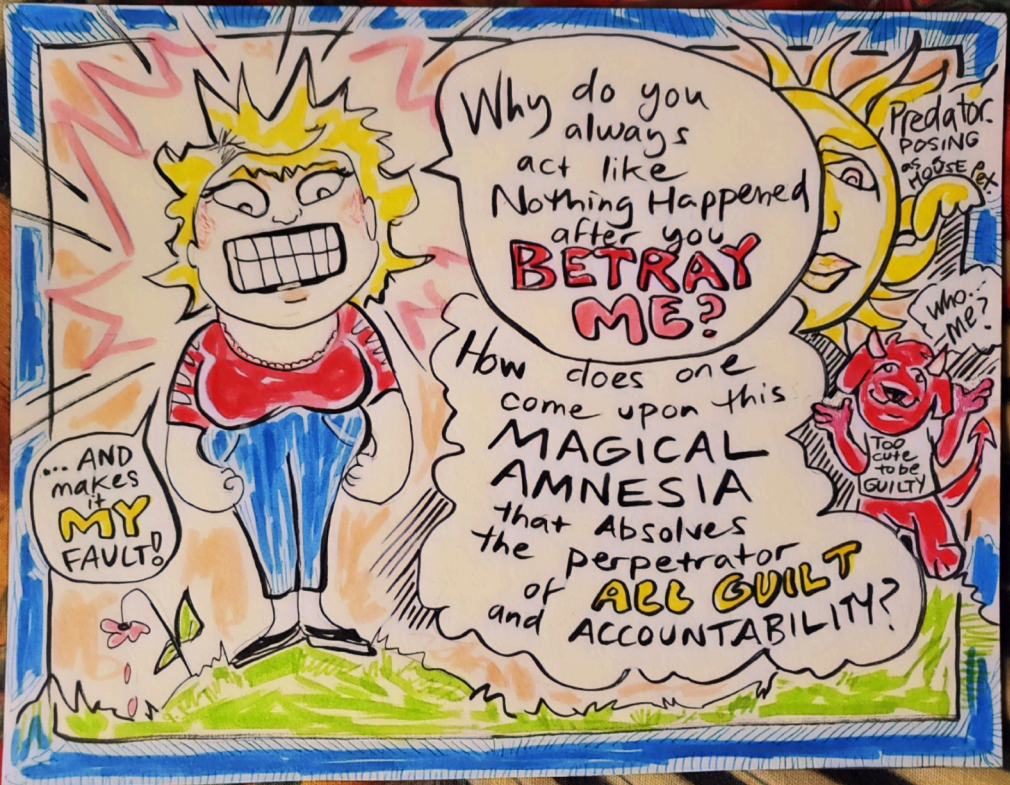 Why do you
always
act like
Nothing Happened
after you
BETRAY
ME?
How does one
come upon this
MAGICAL
AMNESIA
that Absolves
the perpetrator
of ALL GUILT
and ACCOUNTABILITY?
... AND
makes
it
MY
FAULT!
Predator.
POSING
as a
HOUSE Pet
Who...
Me?
Too
cute
to be
GUILTY